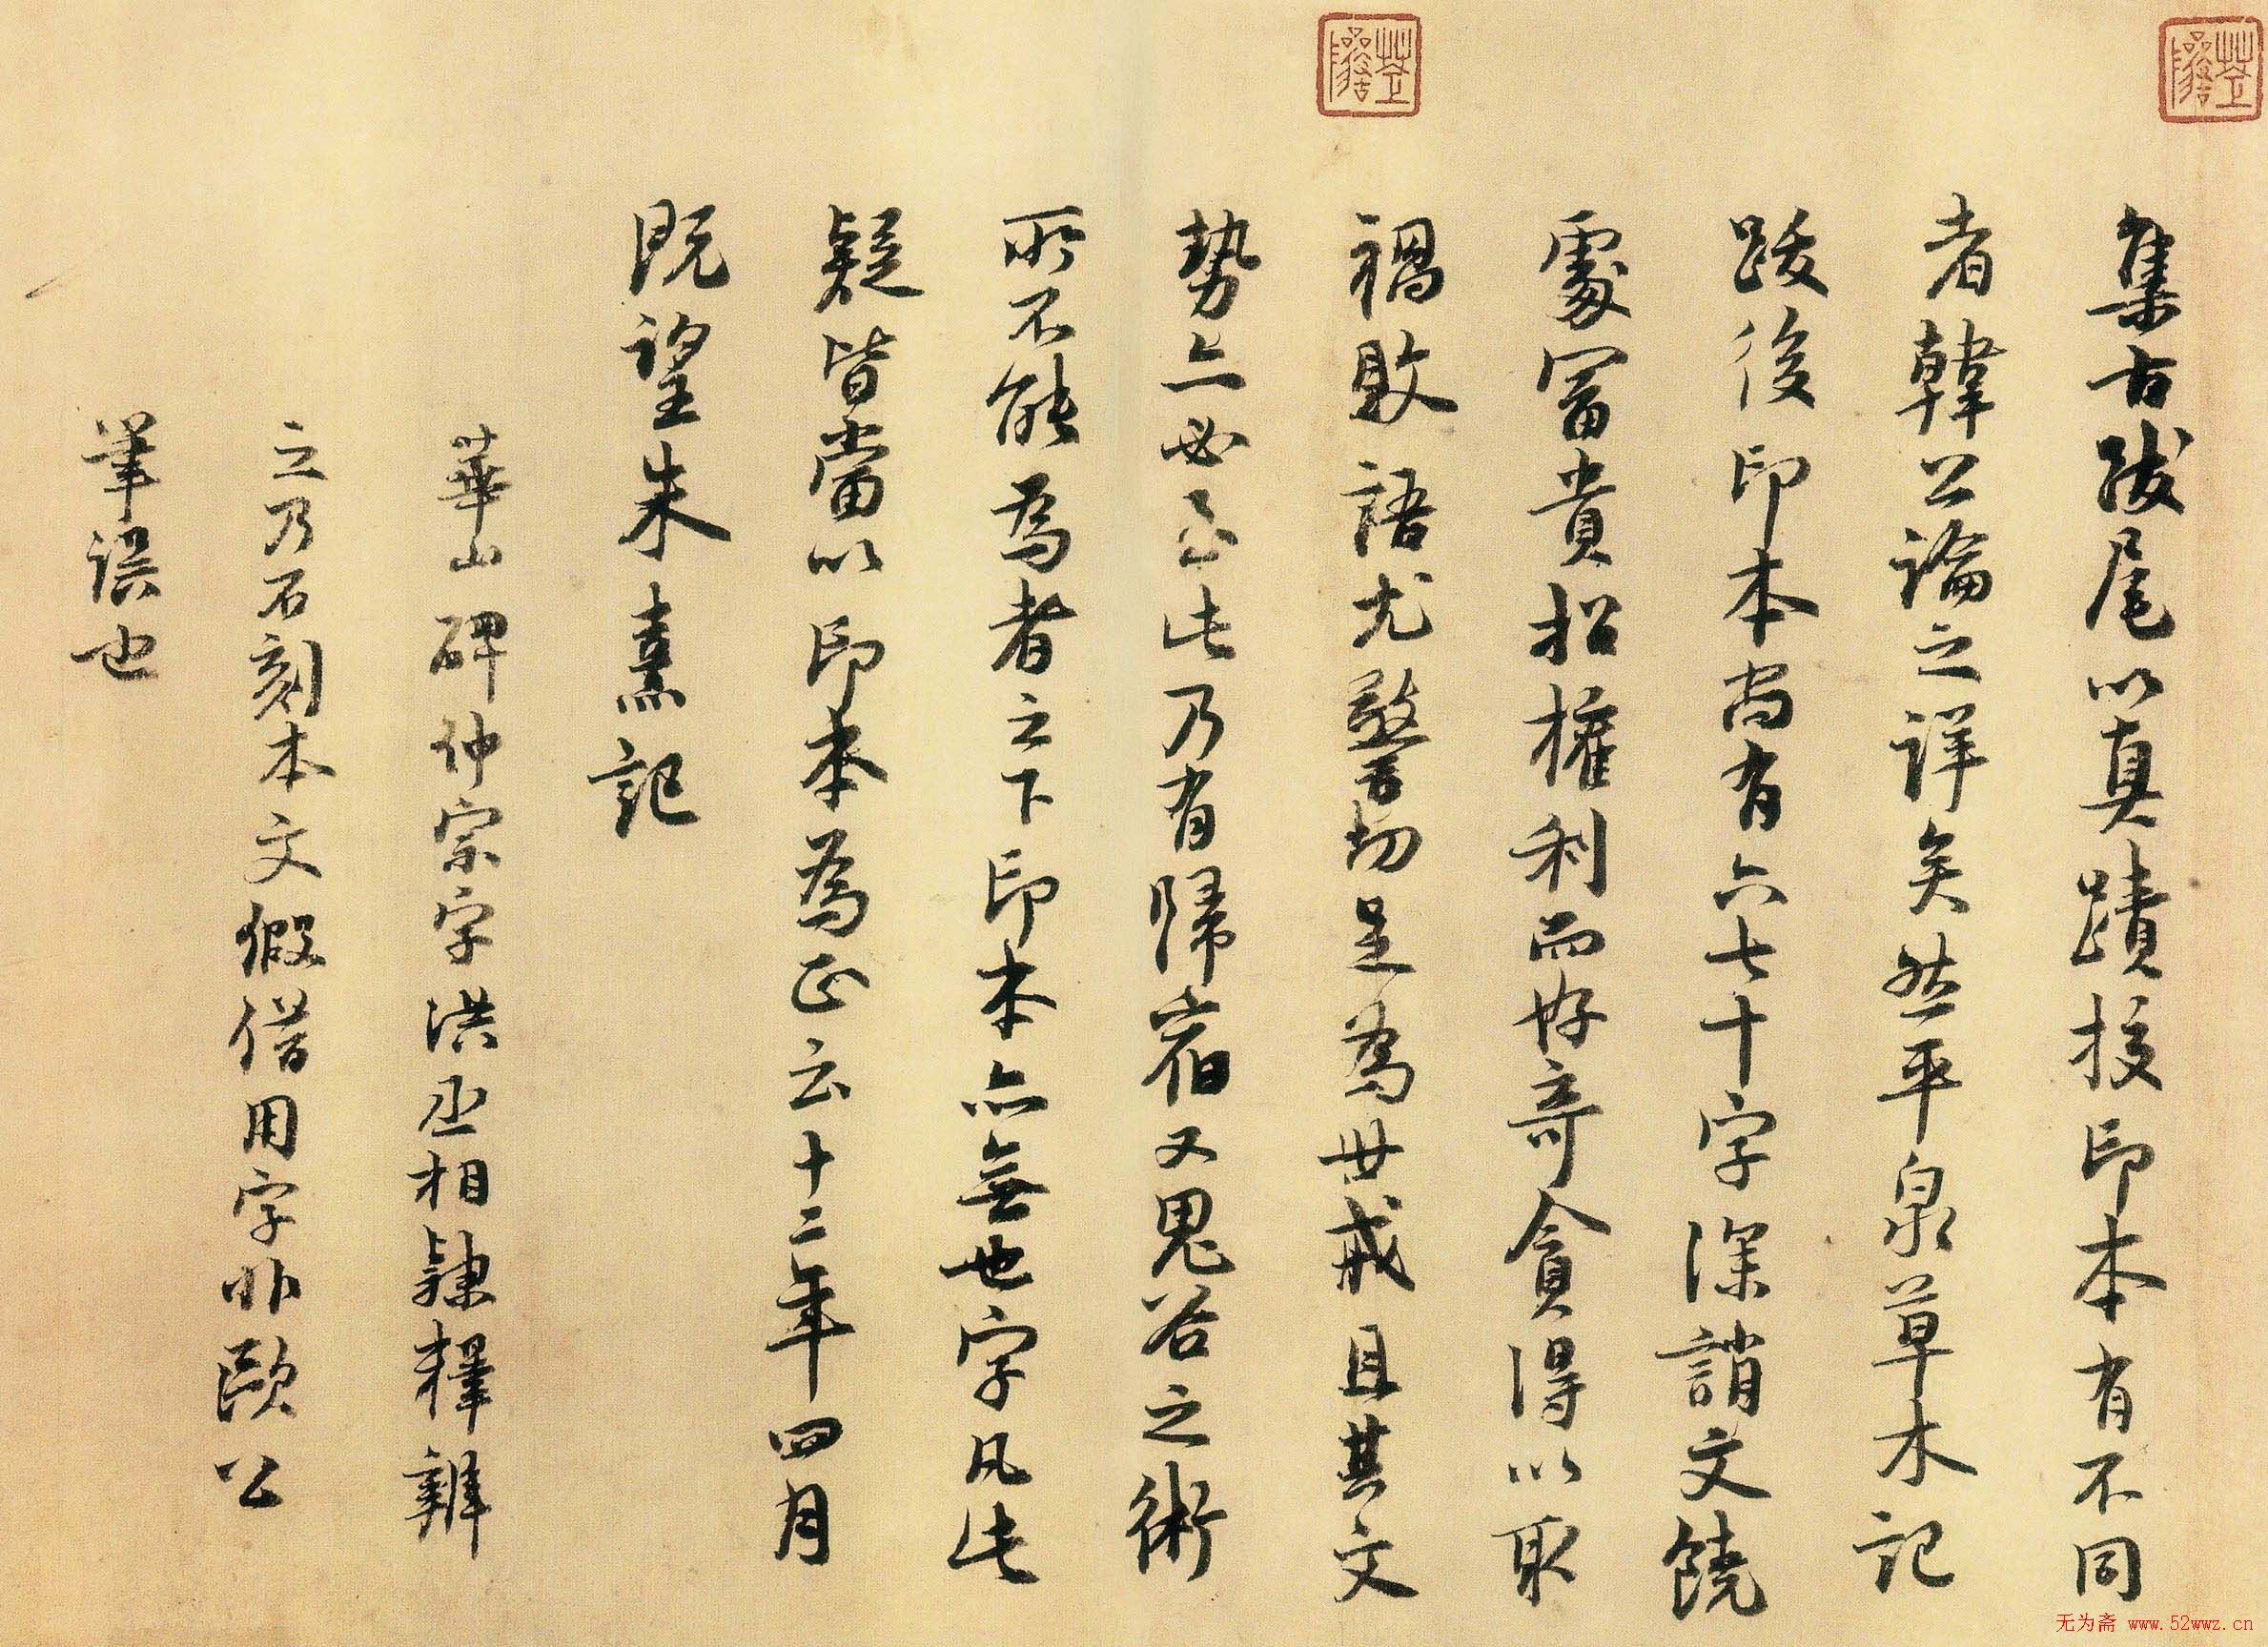 集古跋尾以真蹟校印本有不同
者韓公論之詳矣然平泉草木記
跋後印本尚有六七十字深誚文饒
處富貴招權利而好奇貪得以取
禍敗語尤警切足為世戒且其文
勢亦必至此乃有歸宿又鬼谷之術
所不能為者之下印本亦無也字凡此
疑皆當以印本為正云十二年四月
既望朱熹記
華山碑仲宗字洪丞相隸釋辨
之乃石刻本文假借用字非歐公
筆誤也
无为斋 www.52wwz.cn